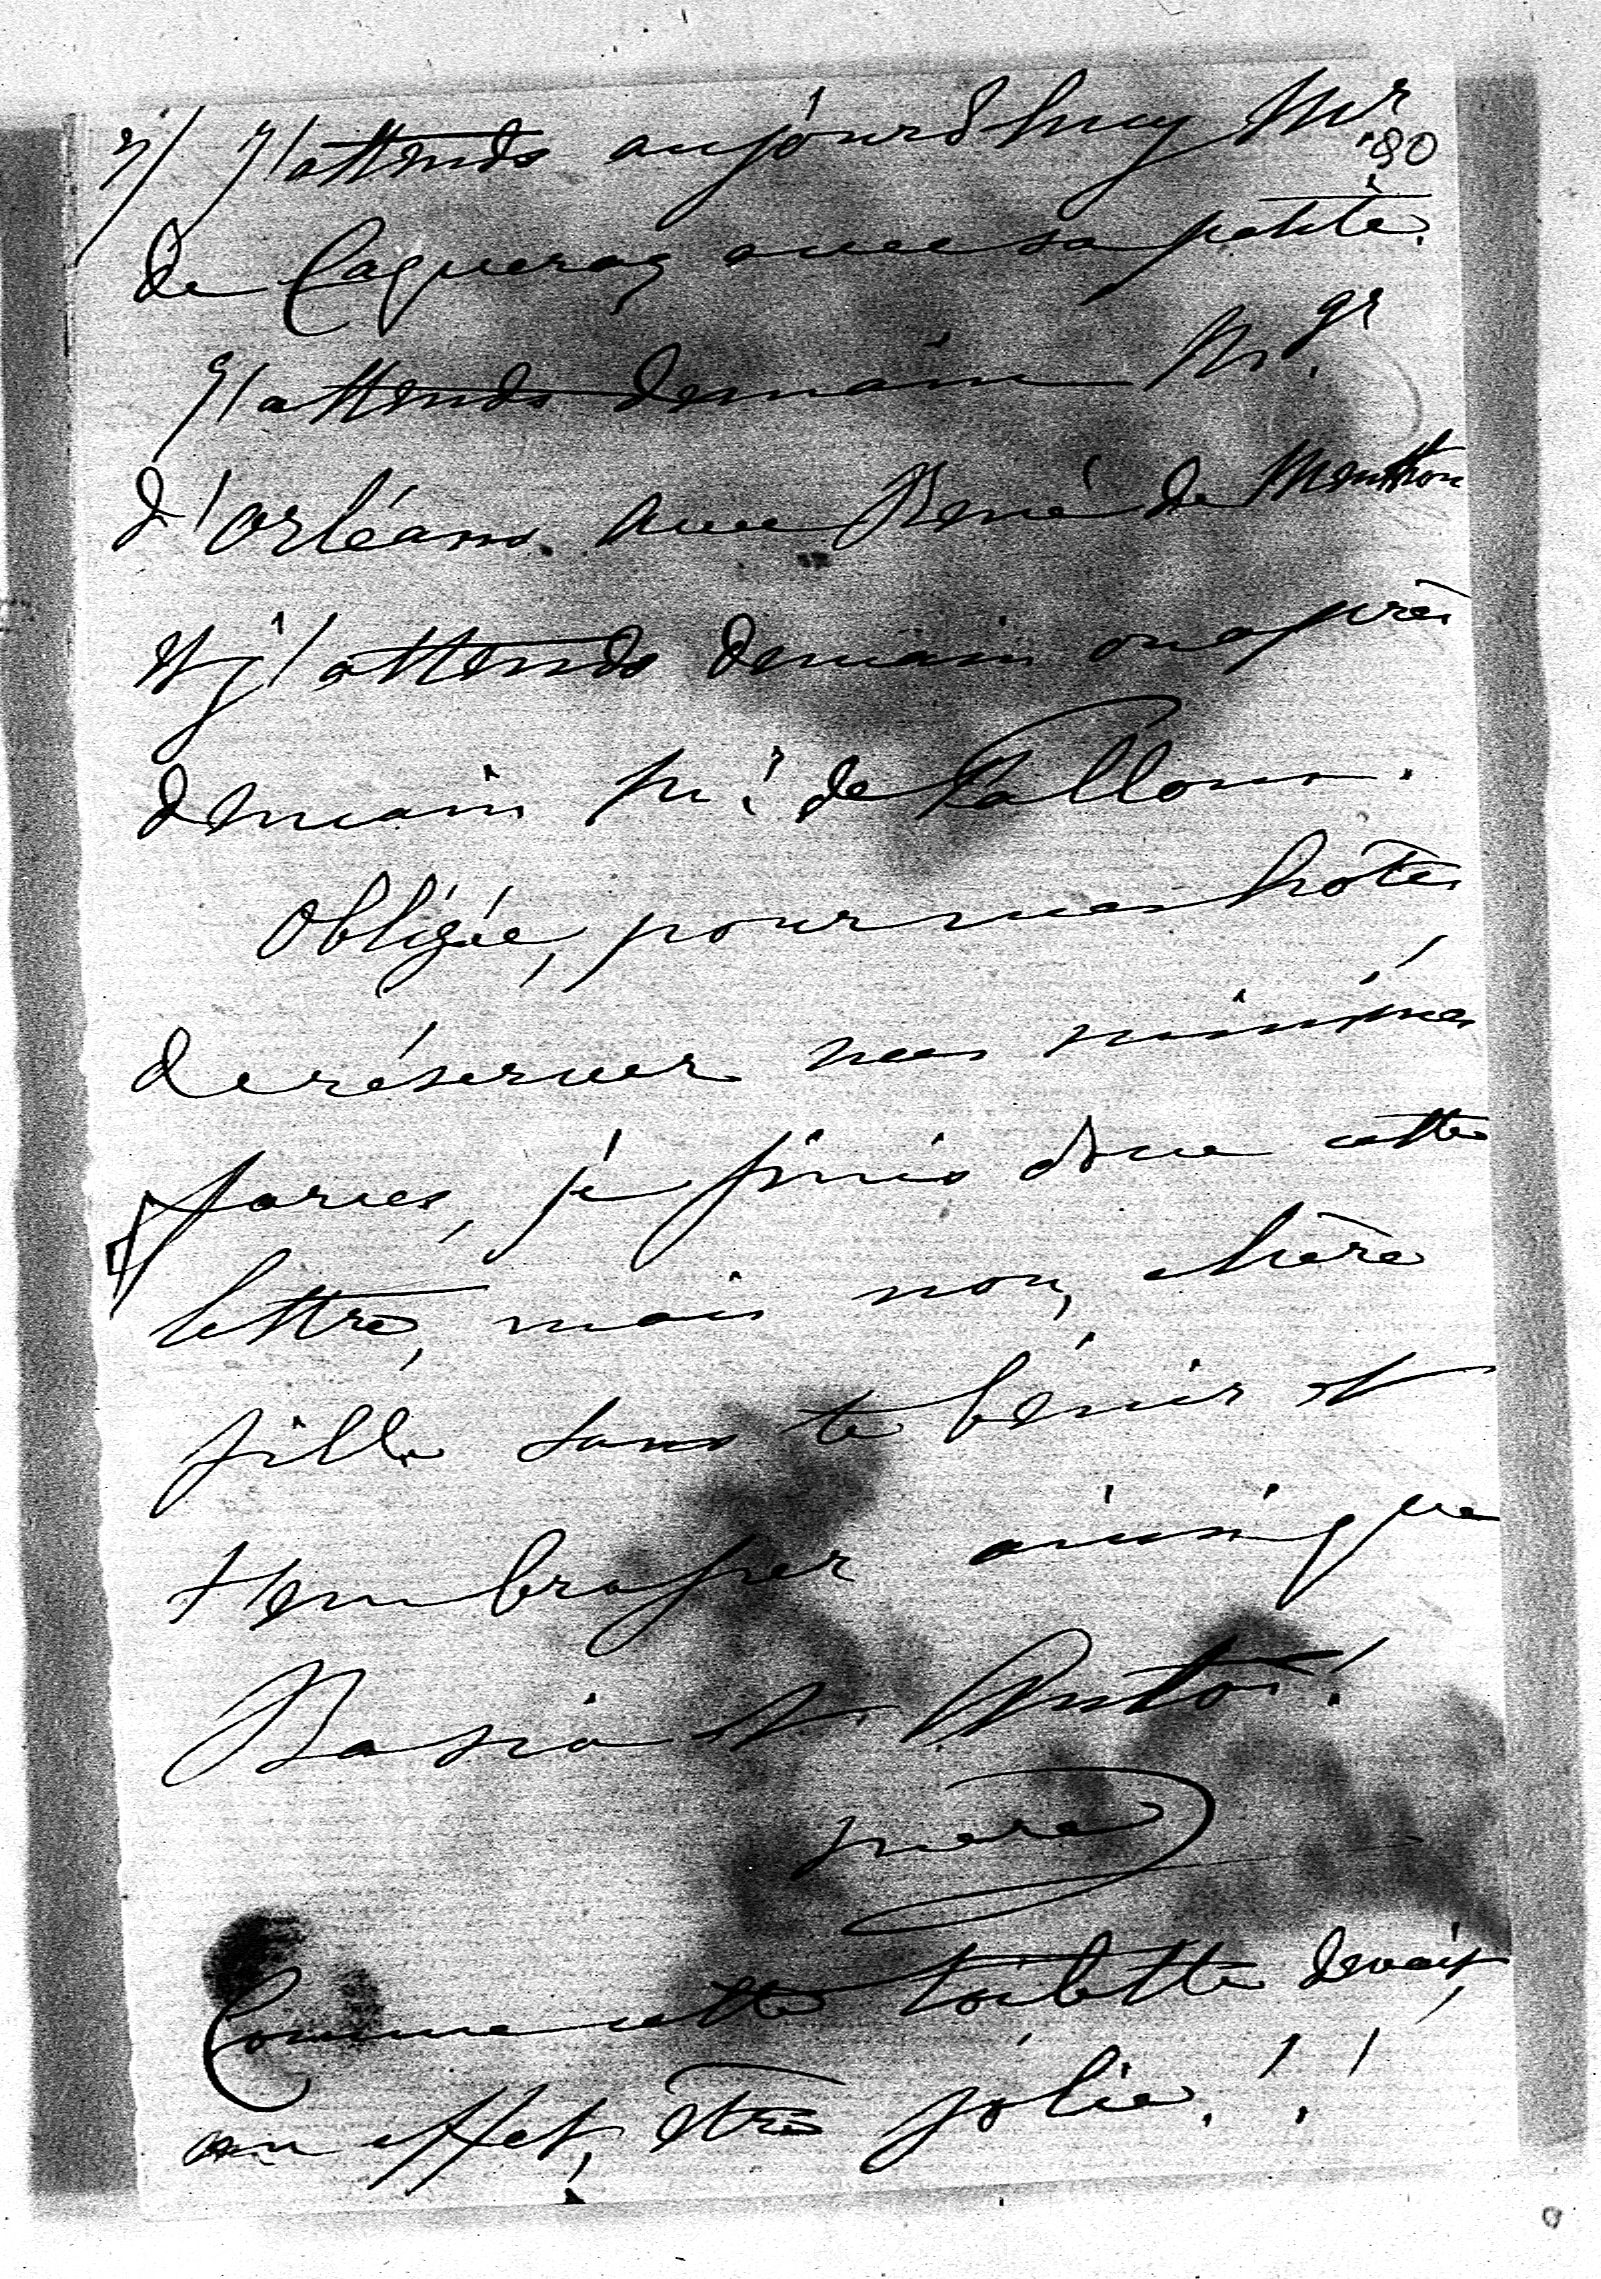 2/ J'attends aujourd'huy Mr
80
de Caqueray avec sa petite.
J'attends demain M.gr
d'Orléans. avec René de Menthon
et j'attends demain ou après
demain Mr de Falloux.
Obligée, pour mes hôtes,
de réserver mes minimes
forces, je finis donc cette
lettre, mais non, chère
fille sans te bénir et
t'embrasser ainsi que
et
mère
Comme cette toilette devait,
en effet, être jolie!!